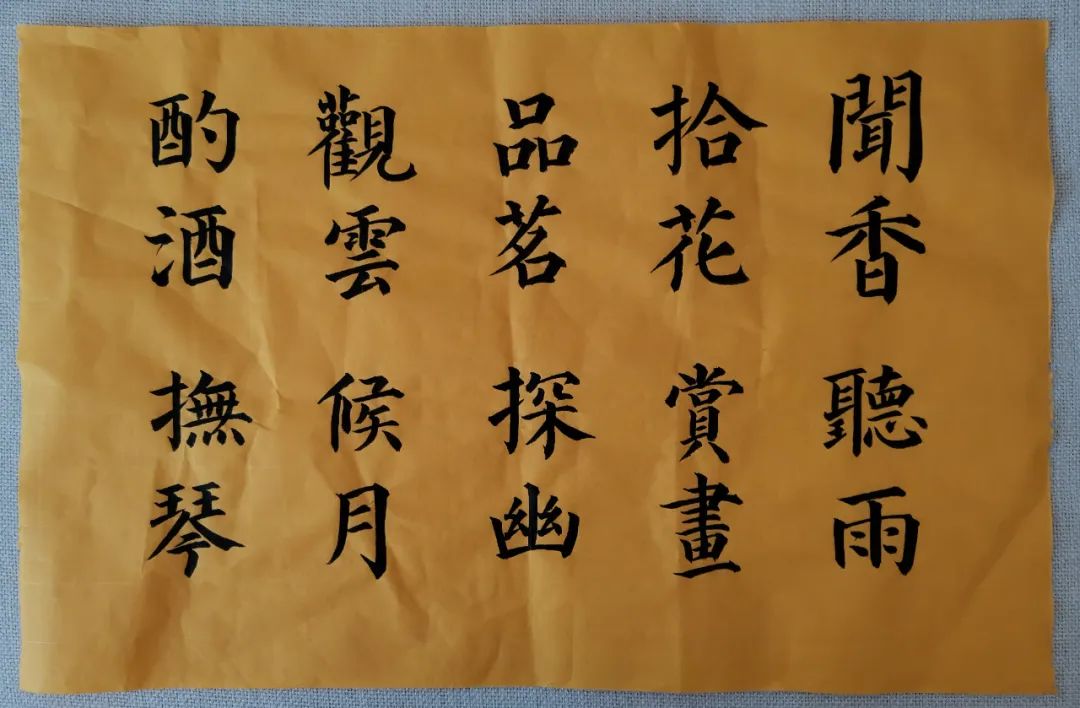 聞香 聽雨
拾花 賞畫
品茗 探幽
觀雲 候月
酌酒 撫琴